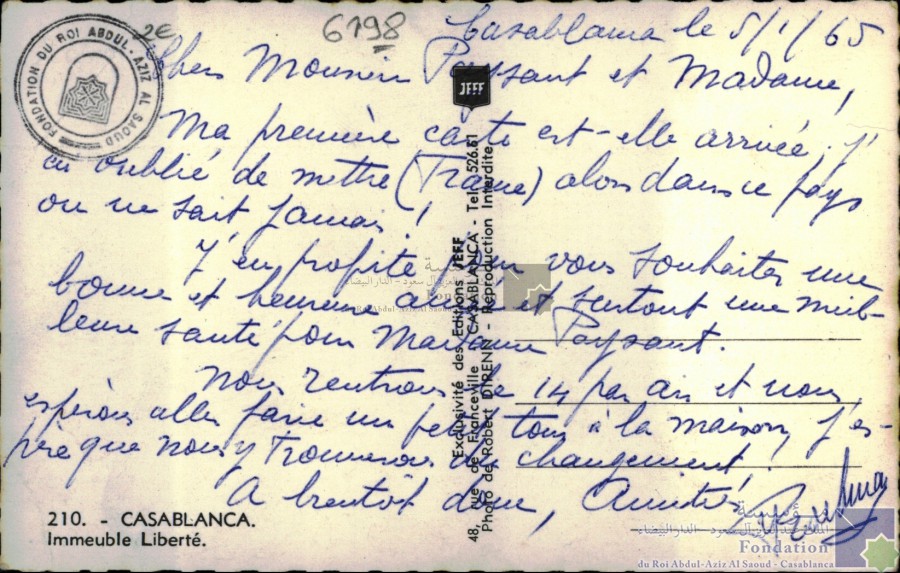 6198
2€
FONDATION DU ROI ABDUL-AZIZ AL SAOUD
Casablanca le 5/1/65
Cher Monsieur Paysant et Madame,
Ma première carte est-elle arrivée. J'
ai oublié de mettre (France) alors dans ce pays
on ne sait jamais !
J'en profite pour vous souhaiter une
bonne et heureuse année et surtout une meil-
leure santé pour Madame Paysant.
Nous rentrons le 14 par air et nous
espérons aller faire un petit tour à la maison, j'es-
père que nous y trouverons du changement !
A bientôt donc, Amitié
JEFF
Exclusivité des Editions JEFF
48, rue de Franceville - CASABLANCA - Tel. 526.61
Photo de Robert DIRENN - Reproduction Interdite
210. - CASABLANCA.
Immeuble Liberté.
مؤسسة
الملك عبد العزيز آل سعود - الدار البيضاء
Fondation
du Roi Abdul-Aziz Al Saoud - Casablanca